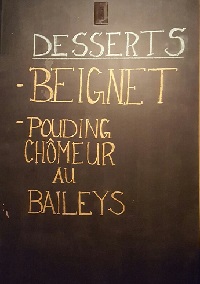 DESSERTS
- BEIGNET
- POUDING
CHÔMEUR
AU
BAILEYS